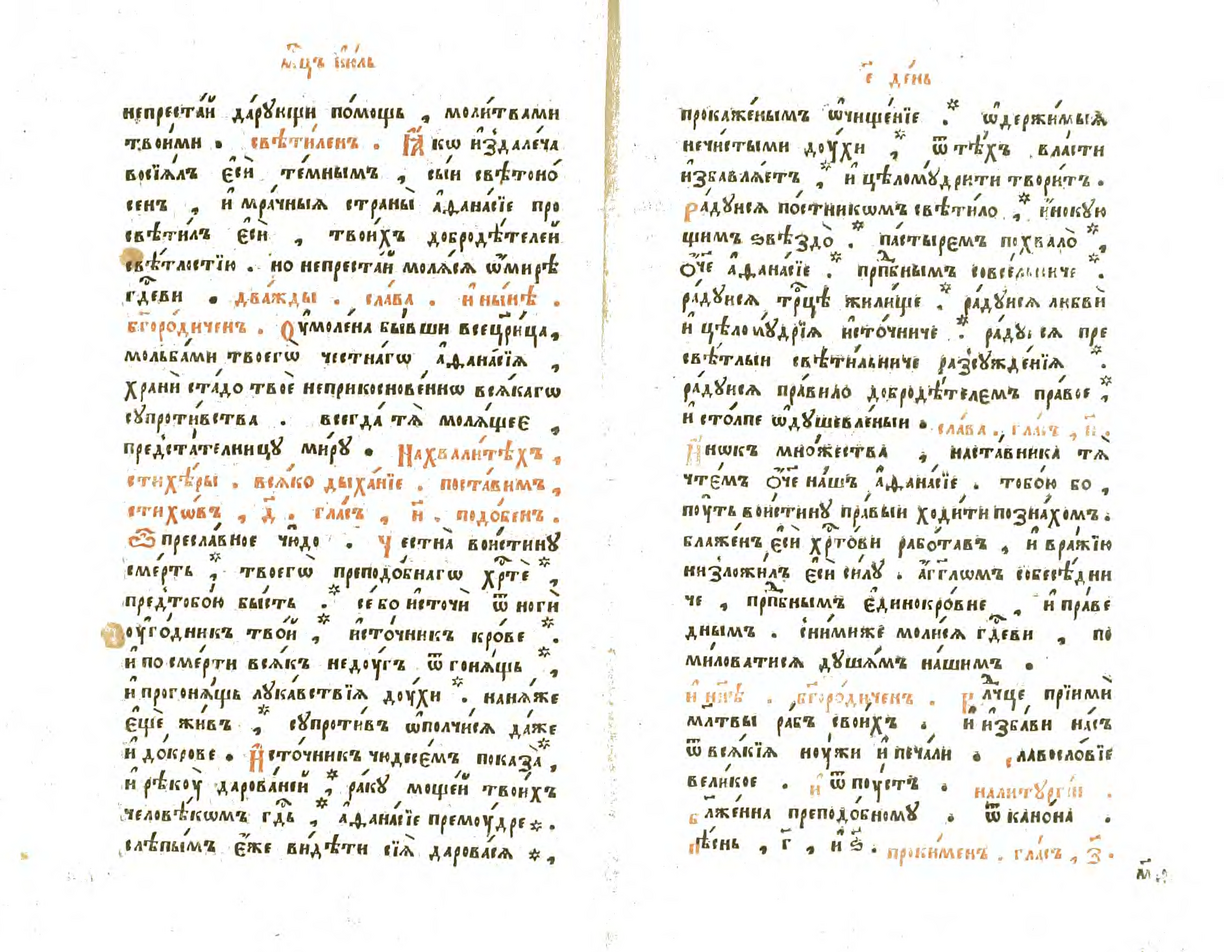 мⷭ҇цъ і҆ю́ль
непреста́й да́рꙋющи по́мощь , моли́твами
твои́ми . свѣти́ленъ . Ꙗ҆́ кѡ и҆здале́ча
восїѧ́лъ є҆сѝ те́мнымъ , сы́и свѣтоно́
сенъ , и҆ мра́чныѧ страны̀ а҆ѳана́сїе про
свѣти́лъ є҆сѝ , твои́хъ добродѣ́телей
свѣ́тлостїю . но непреста́й молѧ́сѧ ѡ҆ ми́рѣ
гдⷭ҇еви . два́жды . сла́ва . и҆ ны́нѣ .
бг҃оро́диченъ . Ѹ҆мо́лена бы́вши всецр҃и́ца ,
мольба́ми твоегѡ̀ че́стнагѡ а҆ѳана́сїѧ ,
хранѝ ста́до твоѐ неприкоснове́нно всѧ́кагѡ
сꙋпроти́вства . всегда́ тѧ̀ молѧ́щеє ,
предста́телницꙋ ми́рꙋ . На хвали́тѣхъ ,
стихе́ры . всѧ́ко дыха́нїе . поста́вимъ ,
стихѡ́въ , д҃ . гла́съ , и҃ . подо́бенъ .
Ѽ пресла́вное чю́до . Ч естна̀ вои́стинꙋ
сме́рть ,* твоегѡ̀ преподо́бнагѡ хрⷭ҇тѐ *,
пред̾ тобо́ю бы́сть .* се́ бо и҆сточѝ ѿ ногѝ
оу҆го́дникъ тво́й ,* и҆сто́чникъ кро́ве *.
и҆ по сме́рти всѧ́къ недꙋ́гъ ѿ гонѧ́щь *,
и҆ прогонѧ́щь лꙋка́вствїѧ дꙋ́хи *. на нѧ́же
є҆щѐ жи́въ ,* сꙋпроти́въ ѡ҆полчи́сѧ да́же
и҆ до кро́ве . И҆ сто́чникъ чюдесе́мъ показа̀ *,
и҆ рѣкꙋ̀ дарова́ней ,* ра́кꙋ моще́й твои́хъ
человѣ́кѡмъ гдⷭ҇ь ,* а҆ѳана́сїе премꙋ́дре *.
слѣпы́мъ є҆́же ви́дѣти сїѧ̀ дарова́сѧ *,
є҃ де́нь
прокаже́нымъ ѡ҆чище́нїе .* ѡ҆держи́мыѧ
нечи́стыми дꙋ́хи ,* ѿ тѣ́хъ вла́сти
и҆збавлѧ́етъ ,* и҆ цѣломꙋ́дрити твори́тъ .
Ра́дꙋисѧ по́стникѡмъ свѣти́ло ,* и҆́нокꙋю
щимъ ѕвѣздо̀ .* па́стыремъ похвало̀ *,
ѻ҆́ч҃е а҆ѳана́сїе .* прпⷣбнымъ совсе́льниче *.
ра́дꙋисѧ трⷪ҇цѣ жили́ще .* ра́дꙋисѧ любвѝ
и҆ цѣломꙋ́дрїѧ и҆сто́чниче *. ра́дꙋисѧ пре
свѣ́тлыи свѣти́льниче разсꙋжде́нїѧ *.
ра́дꙋисѧ пра́вило добродѣ́телемъ пра́вое *,
и҆ сто́лпе ѡ҆дꙋшевле́ныи . сла́ва . гла́съ , и҃ .
И҆́нѡкъ мно́жества , наста́вника тѧ̀
чте́мъ ѻ҆́ч҃е на́шъ а҆ѳана́сїе . тобо́ю бо ,
пꙋ́ть вои́стинꙋ пра́выи ходи́ти позна́хомъ .
блаже́нъ є҆сѝ хрⷭ҇то́ви рабо́тавъ , и҆ вра́жїю
низложи́лъ є҆сѝ си́лꙋ . а҆́гг҃лѡмъ собесѣ́дни
че , прпⷣбнымъ є҆динокро́вне , и҆ пра́ве
днымъ . с ни́миже моли́сѧ гдⷭ҇еви , по
ми́ловатисѧ дꙋша́мъ на́шимъ .
и҆ нн҃ѣ . бг҃оро́диченъ . влⷣчце прїимѝ
мл҃твы ра́бъ свои́хъ . и҆ и҆зба́ви на́съ
ѿ всѧ́кїѧ нꙋ́жи и҆ печа́ли . славосло́вїе
вели́кое . и҆ ѿ пꙋ́стъ . на литꙋргі́и .
бл҃же́нна преподо́бномꙋ . ѿ кано́на .
пѣ́снь , г҃ , и҆ ѕ҃ . проки́менъ . гла́съ , з҃ .